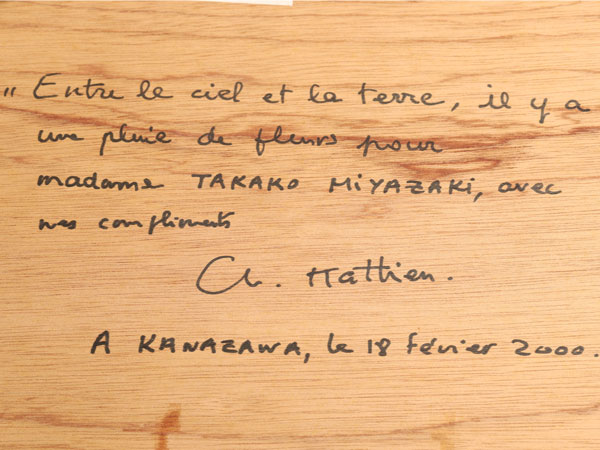 " Entre le ciel et la terre, il y a
une pluie de fleurs pour
madame TAKAKO MiYAZAKi, avec
mes compliments
Ch. Matthieu.
A KANAZAWA, le 18 février 2000.